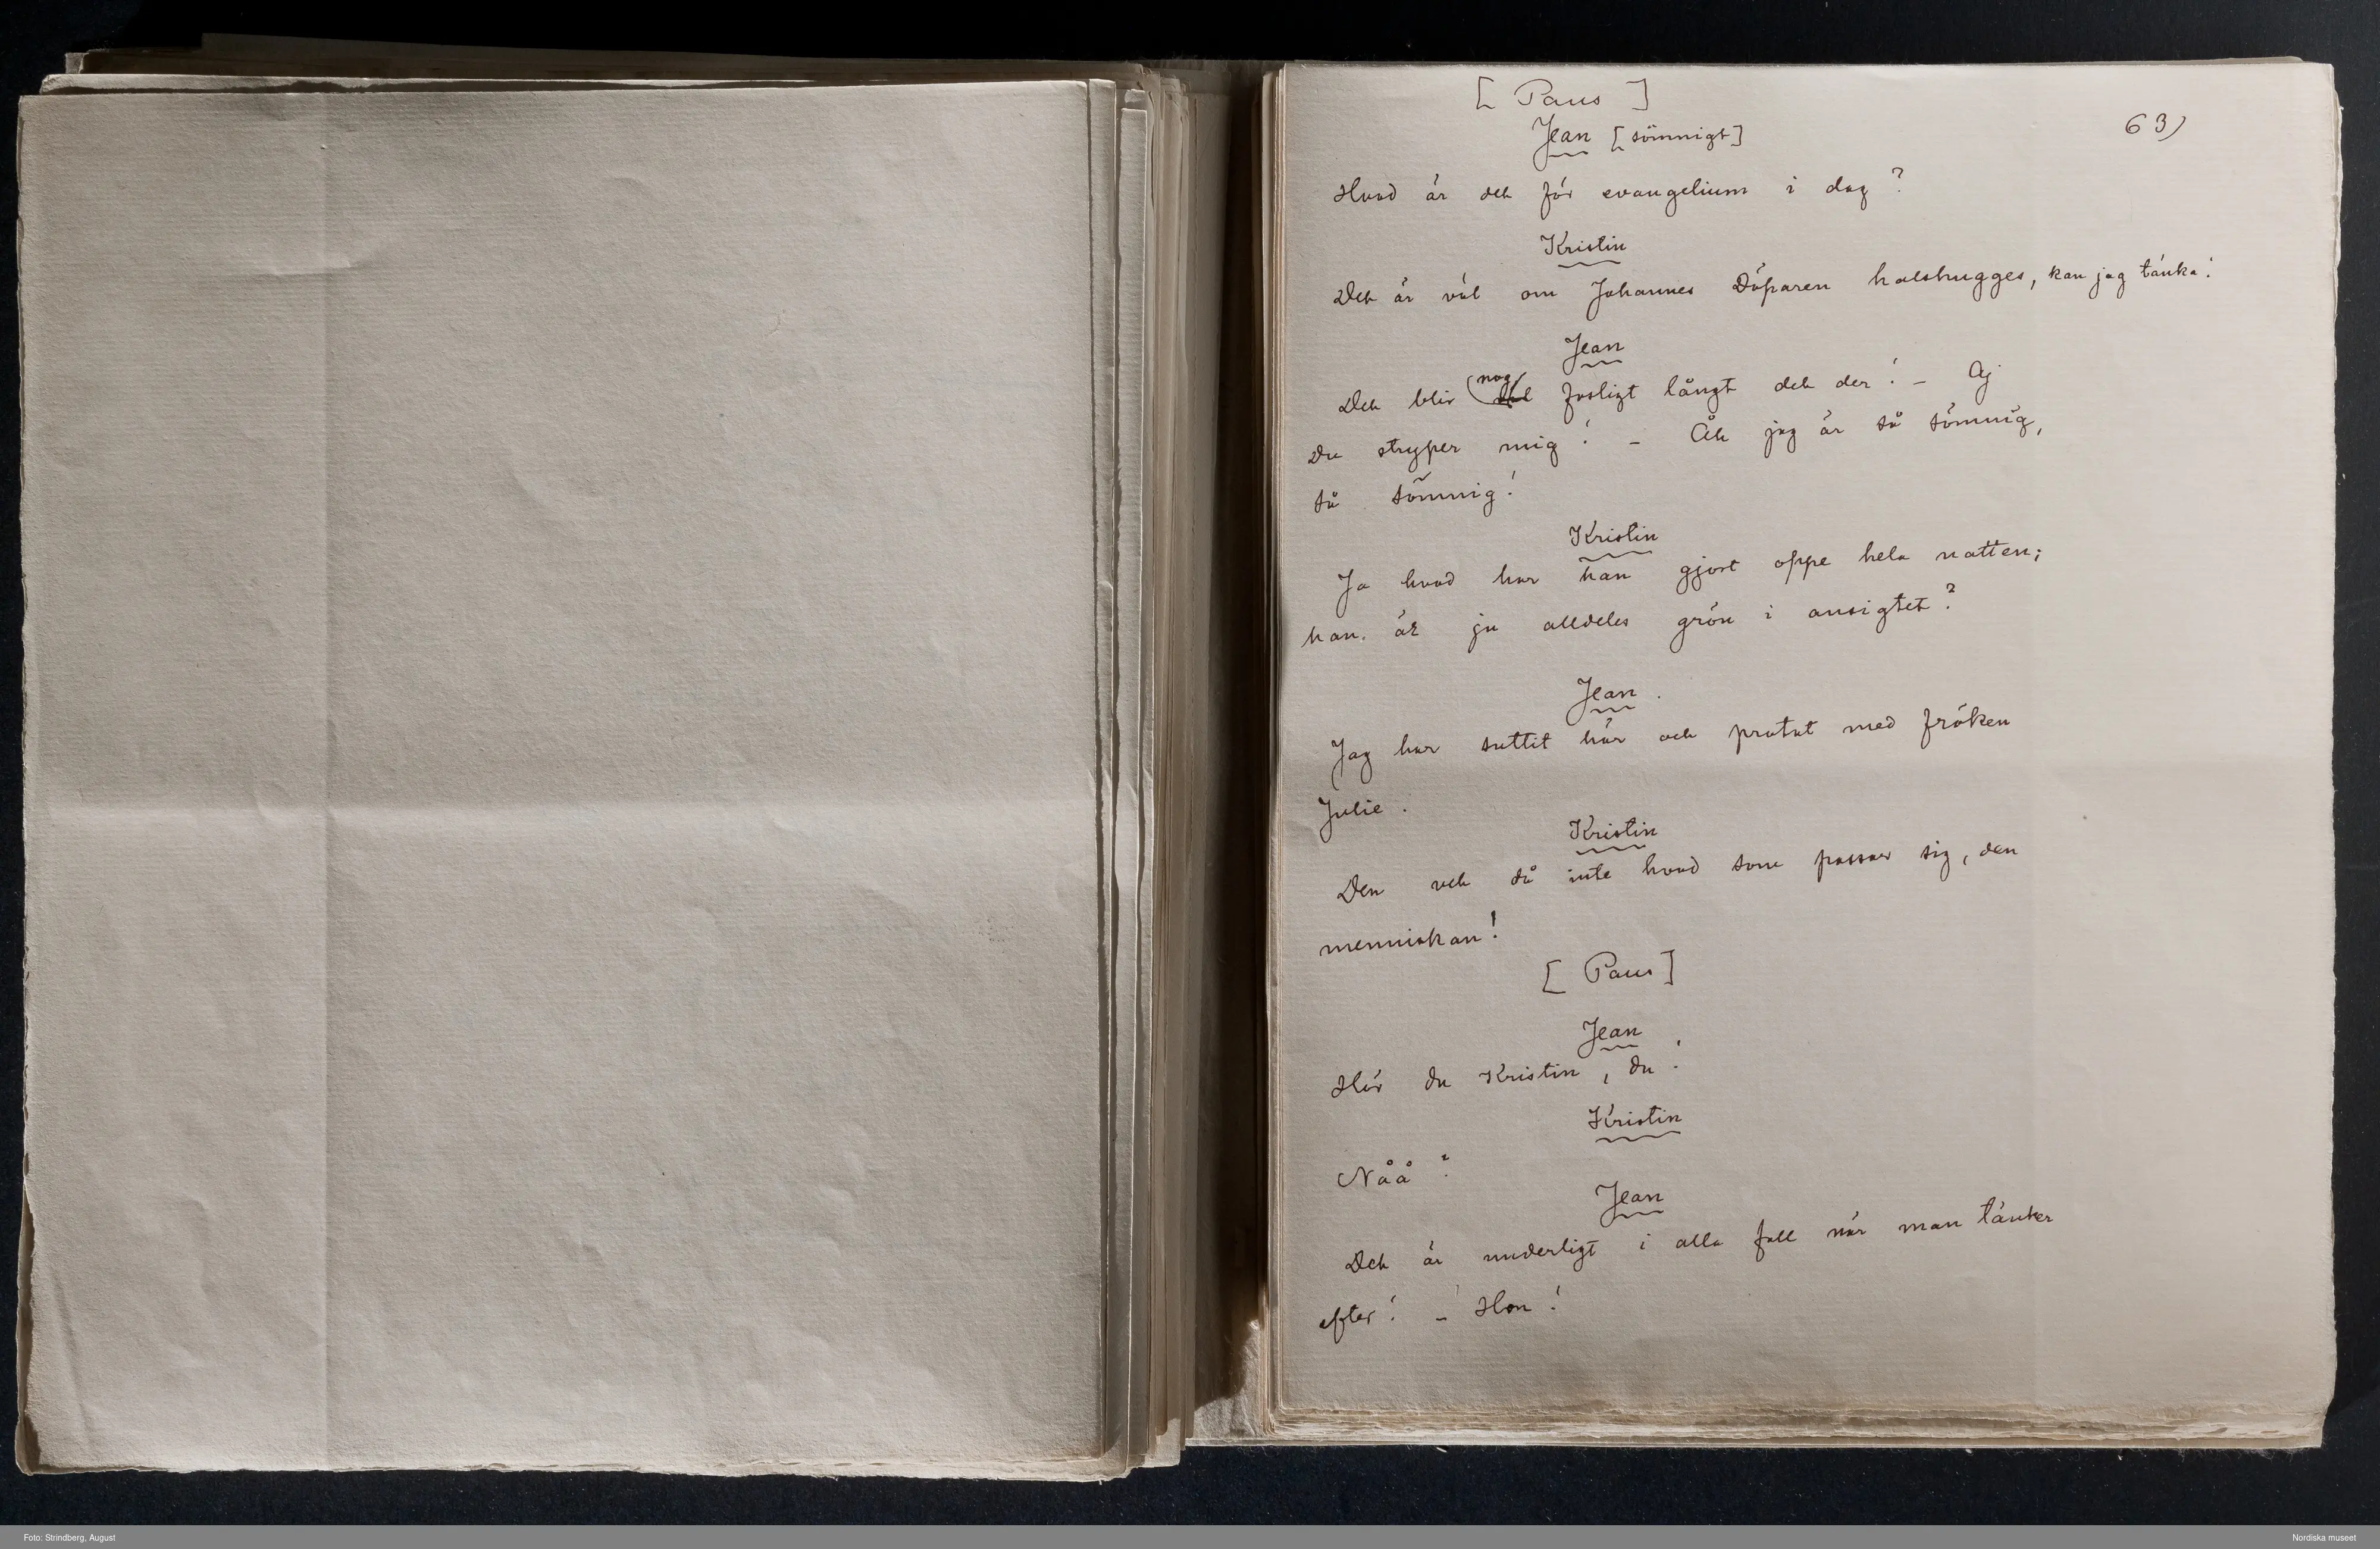 [ Paus ]
63)
Jean [sömnigt]
Hvad är det för evangelium i dag?
Kristin
Det är väl om Johannes Döparen halshugges, kan jag tänka!
Jean
nog
Det blir fasligt långt det der! – Aj
Du stryper mig! – Åh jag är så sömnig,
så sömnig!
Kristin
Ja hvad har han gjort oppe hela natten;
han. är ju alldeles grön i ansigtet?
Jean.
Jag har suttit här och pratat med fröken
Julie.
Kristin
Den vet då inte hvad som passar sig, den
menniskan!
[ Paus]
Jean
Hör du Kristin, du!
Kristin
Nåå?
Jean
Det är underligt i alla fall när man tänker
efter! – Hon!
Foto: Strindberg, August
Nordiska museet